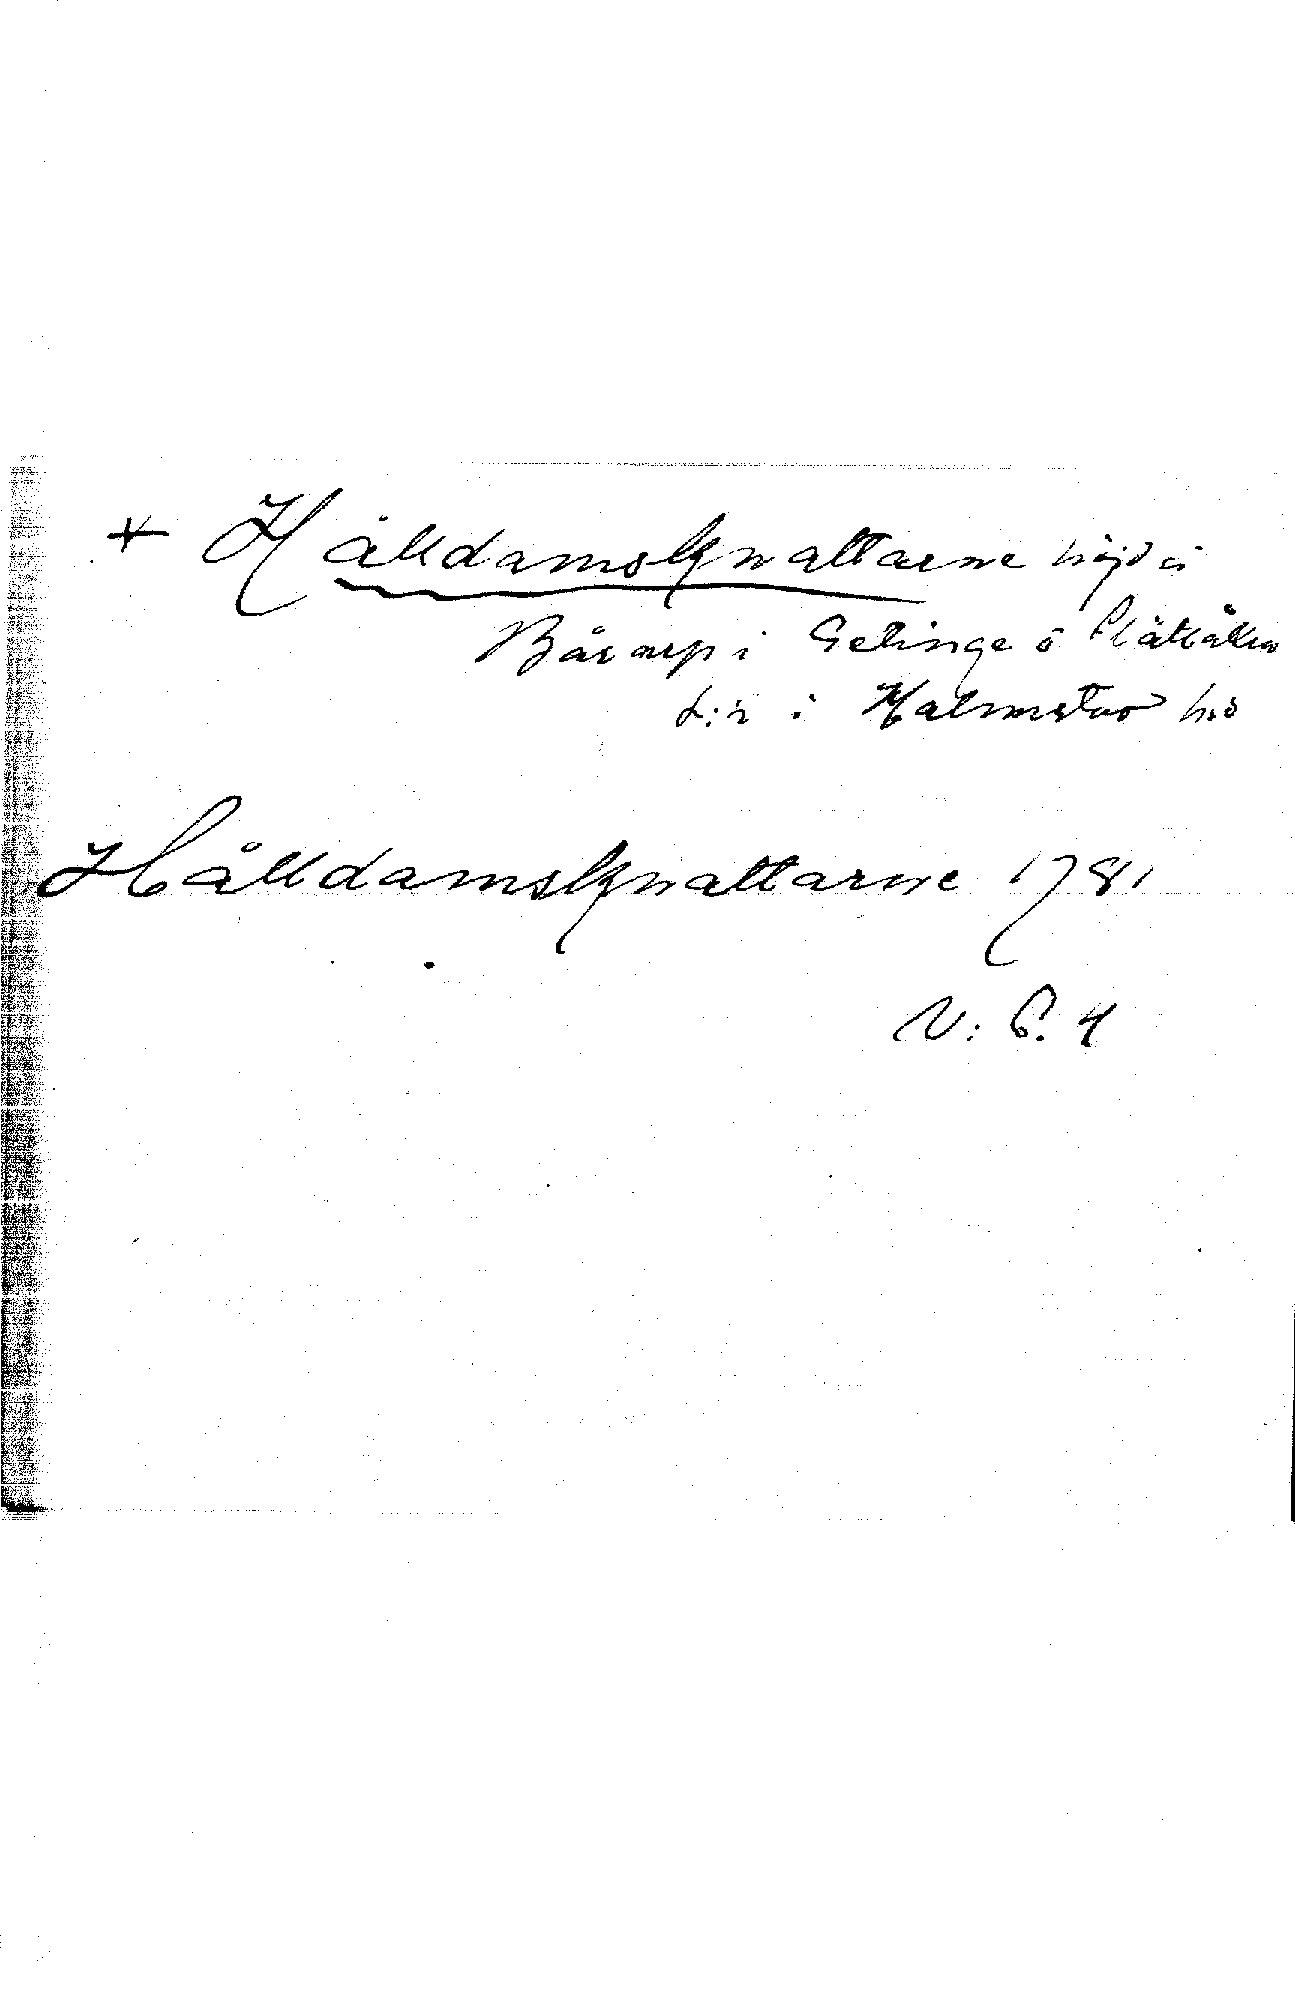 + Hålldamsknattarne höjd i
Båramp i Getinge o Slättåkra
s:r i Halmstad hd
Hålldamsknattarne 1781
N: S. 4